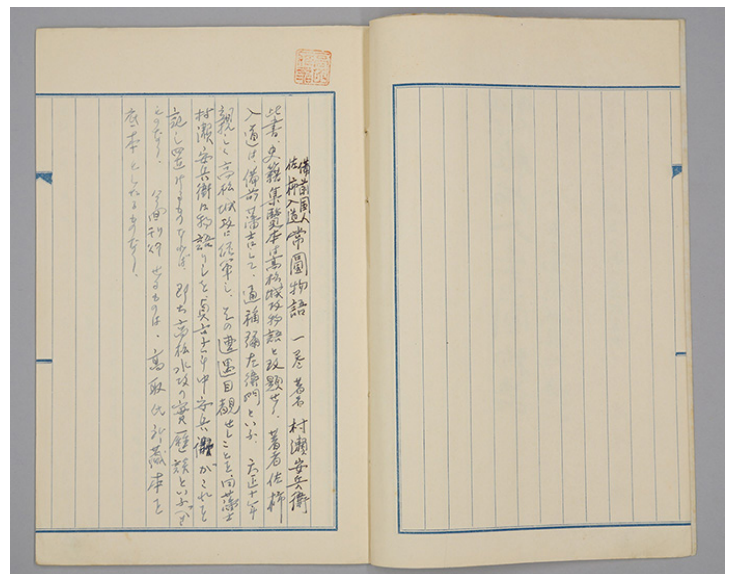 備前国人
佐柿入道 常圓物語 一巻 著者 村瀬安兵衛
此書、史籍集覧本は高松城攻物語と改題せり、著者佐柿
入道は備前藩士にして、通稱弥左衛門といふ、天正十年
親しく高松城攻に従軍し、その遭遇目観せしことを、同藩士
村瀬安兵衛に物語りしを、貞享年中安兵衛がこれを
記し
ものなれば、即ち高松水攻の實歴談といふべき
ものなり、今回刊行せるものは、高取氏所蔵本を
底本としたるものなり、